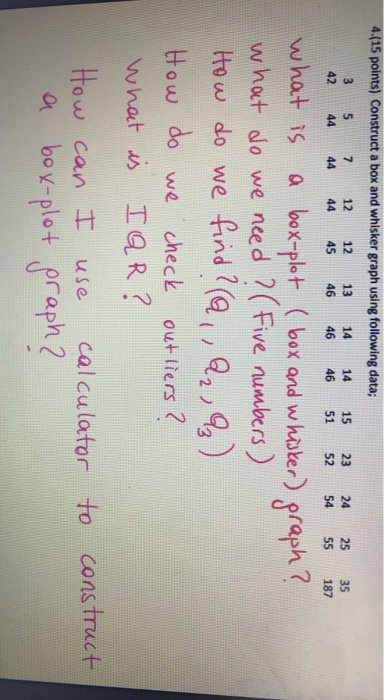 4.(15 points) Construct a box and whisker graph using following data;
3 5 7 12 12 13 14 14 15 23 24 25 35
42 44 44 44 45 46 46 46 51 52 54 55 187
What is a box-plot (box and whisker) graph?
What do we need? (Five numbers)
How do we find? (Q1, Q2, Q3)
How do we check outliers?
What is IQR?
How can I use calculator to construct
a box-plot graph?